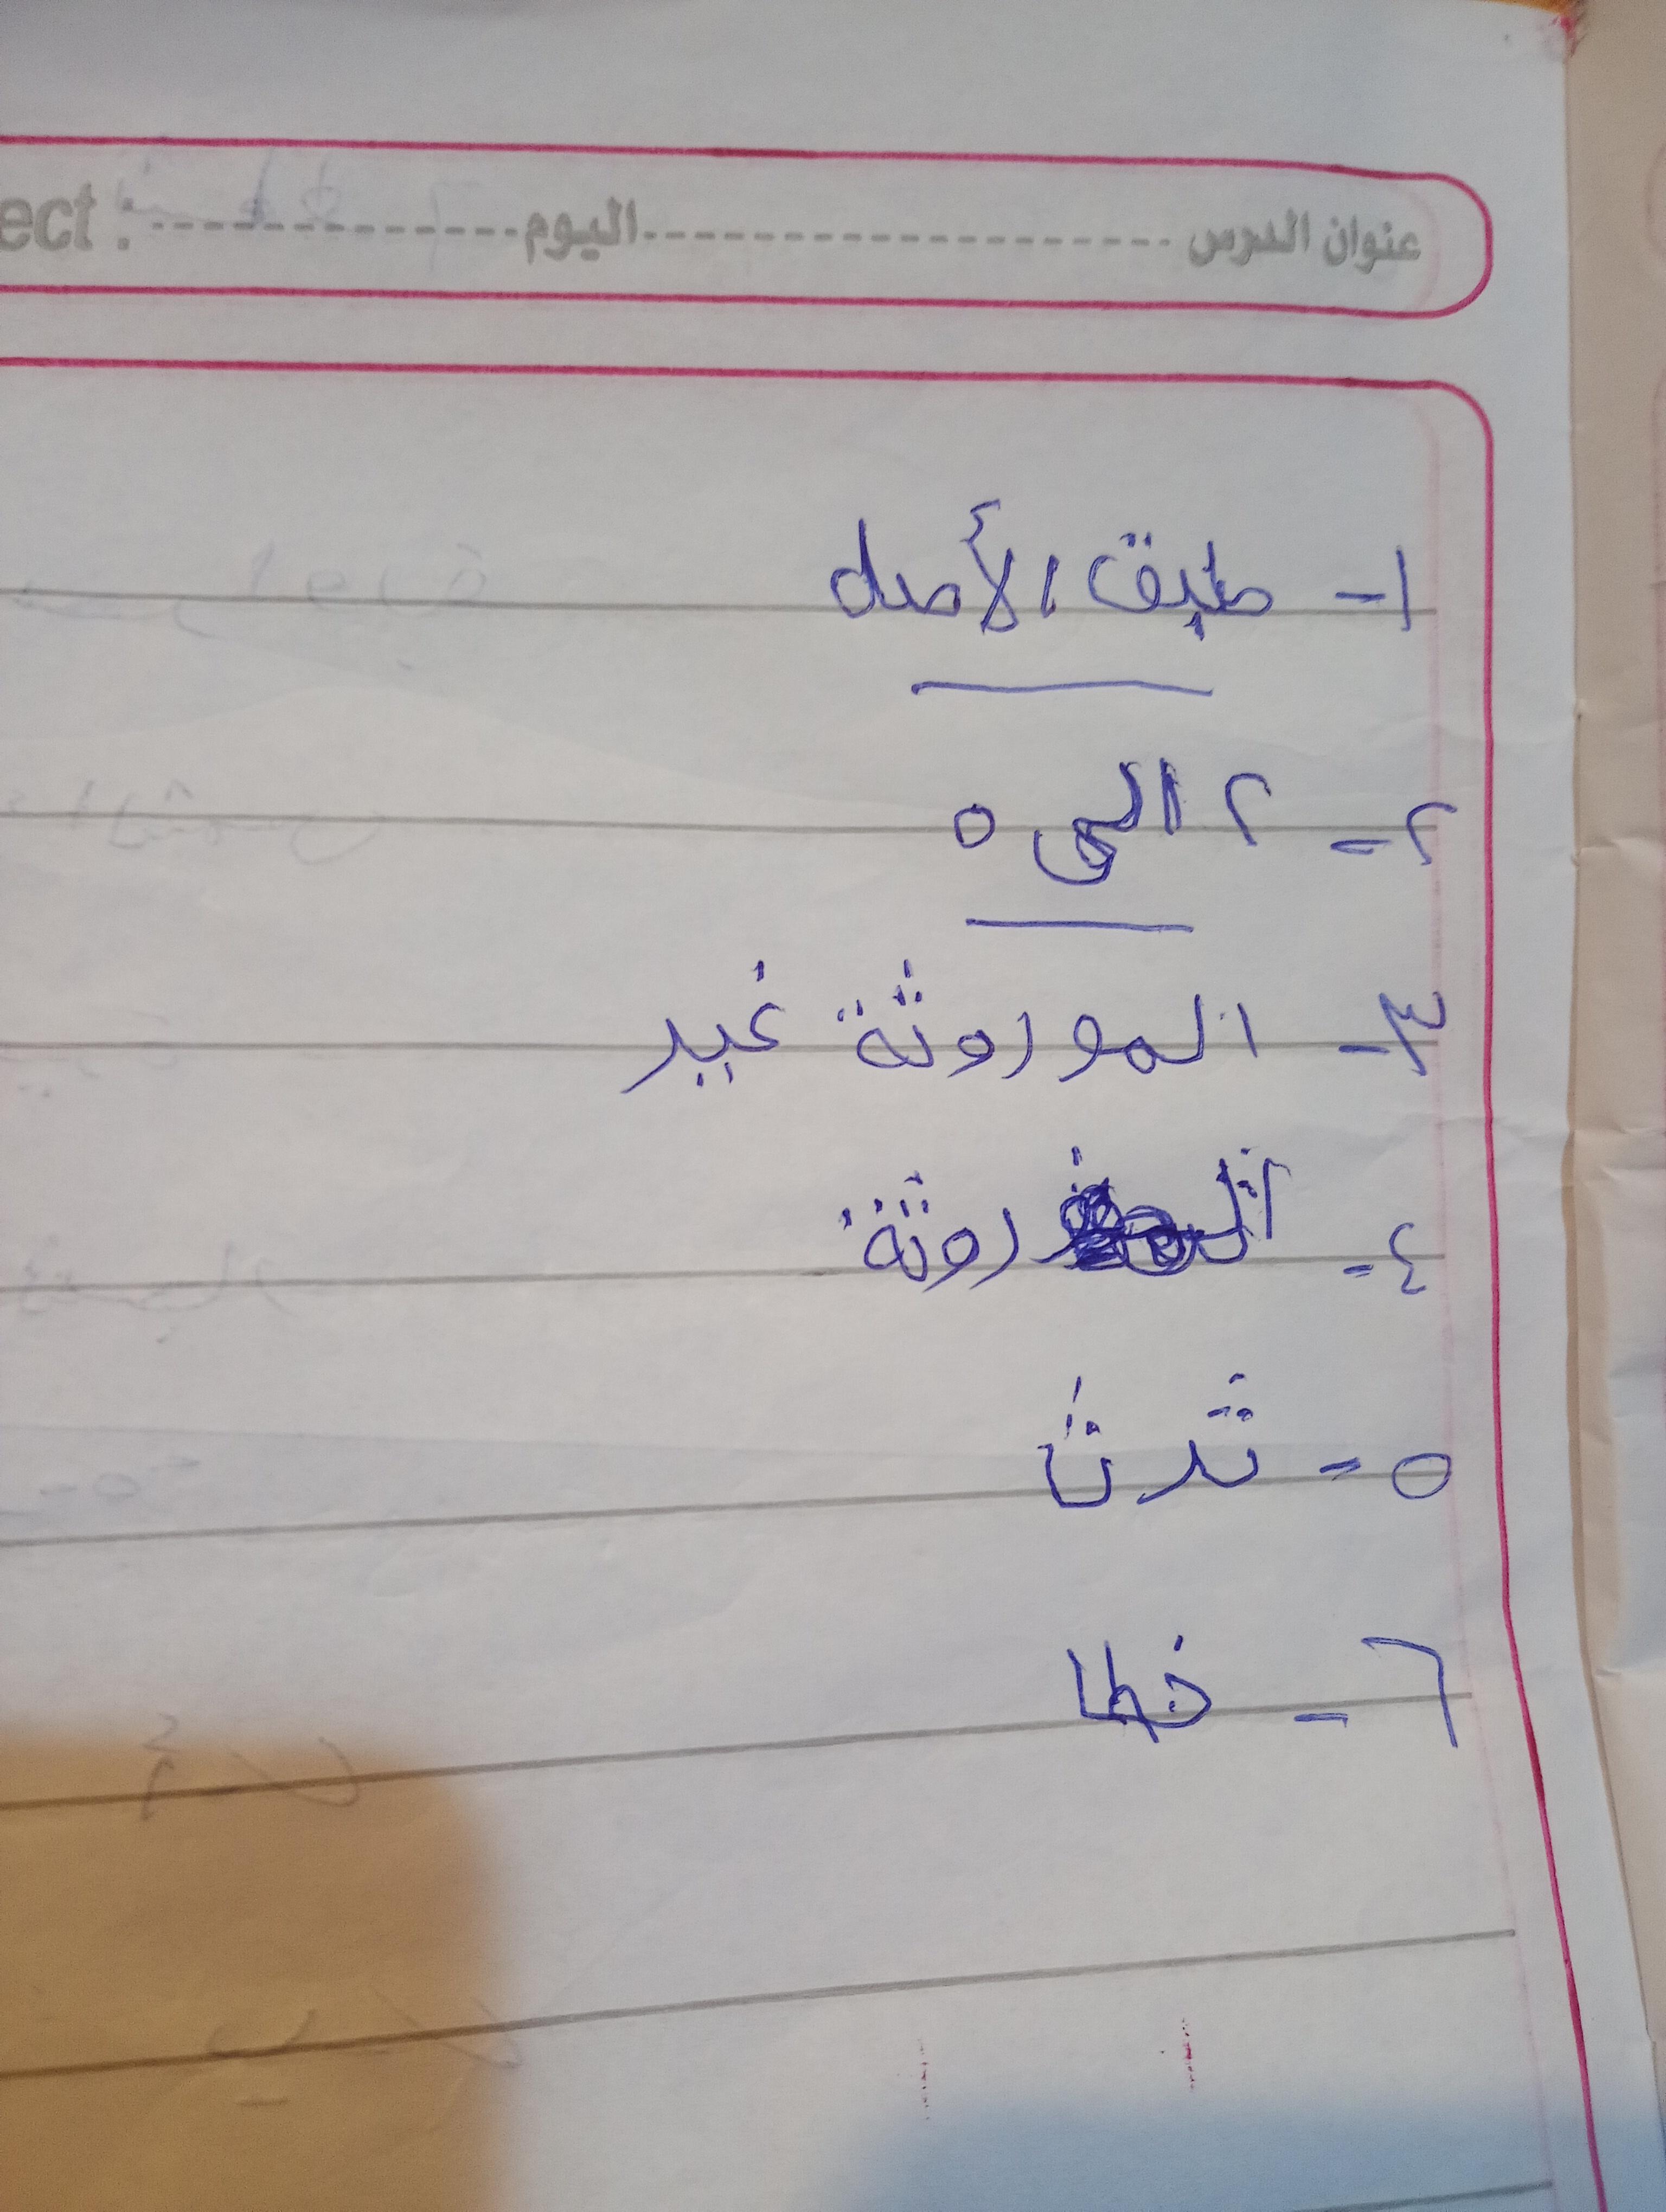 عنوان الدرس ---------------- اليوم ------------ ect :
١- طبق الأصل
٢- ٢ الى ٥
٣- الموروثة غير
٤- روثة
٥-
٦- خطا